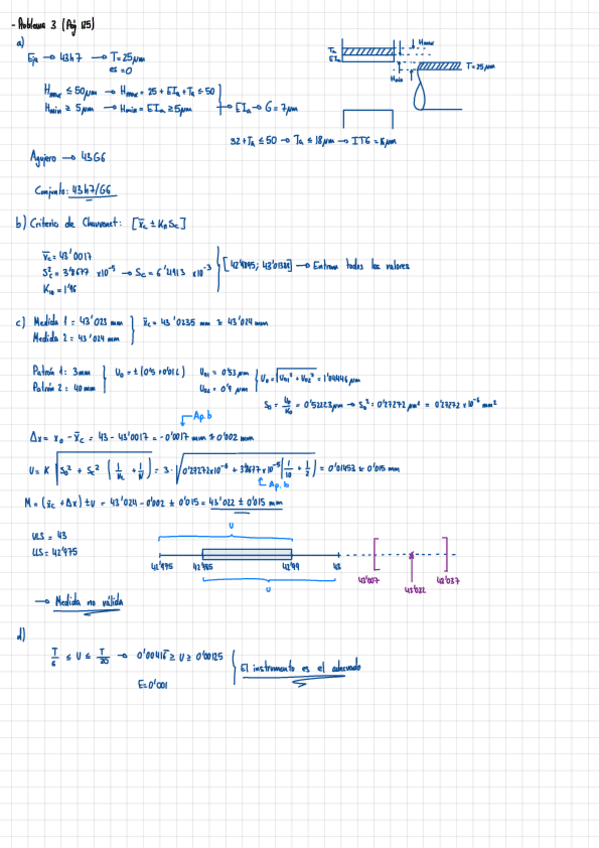 - Problema 3 (Pág 125)
a)
Eje → 43h7 → T = 25μm
es = 0
Hmax ≤ 50μm → Hmax = 25 + EIa + Ta ≤ 50
Hmin ≥ 5μm → Hmin = EIa ≥ 5μm
→ EIa → G = 7μm
Ta
EIa
Hmax
Hmin
T = 25μm
32 + Ta ≤ 50 → Ta ≤ 18μm → IT6 = μm
Agujero → 43G6
Conjunto: 43h7/G6
b) Criterio de Chauvenet: [x̄c ± Kn Sc]
x̄c = 43'0017
Sc² = 3'8677 x10⁻⁵ → Sc = 6'2191 x10⁻³
K10 = 1'96
[42'9895; 43'0138] → Entran todos los valores
c) Medida 1 = 43'023 mm
Medida 2 = 43'024 mm
x̄c = 43'0235 mm ≈ 43'024 mm
Patrón 1: 3mm
Patrón 2 = 40mm
U0 = ± (0'5 + 0'01L)
U01 = 0'53 μm
U02 = 0'9 μm
U0 = √U01² + U02² = 1'04446 μm
S0 = U0/K0 = 0'52223μm → S0² = 0'27272 μm² = 0'27272 x10⁻⁶ mm²
Ap. b
Δx = x0 - x̄c = 43 - 43'0017 = -0'0017 mm ≈ 0'002 mm
U = K √S0² + Sc² (1/Nc + 1/N) = 3 · √0'27272x10⁻⁶ + 3'8677x10⁻⁵ (1/10 + 1/2) = 0'01453 ≈ 0'015 mm
Ap. b
M = (x̄c + Δx) ± U = 43'024 - 0'002 ± 0'015 = 43'022 ± 0'015 mm
U
ULS = 43
LLS = 42'975
42'975 42'985 42'99 43
43'007 43'022 43'037
U
→ Medida no válida
d)
T/6 ≤ U ≤ T/20 → 0'00416 ≥ U ≥ 0'00125
E = 0'001
El instrumento es el adecuado